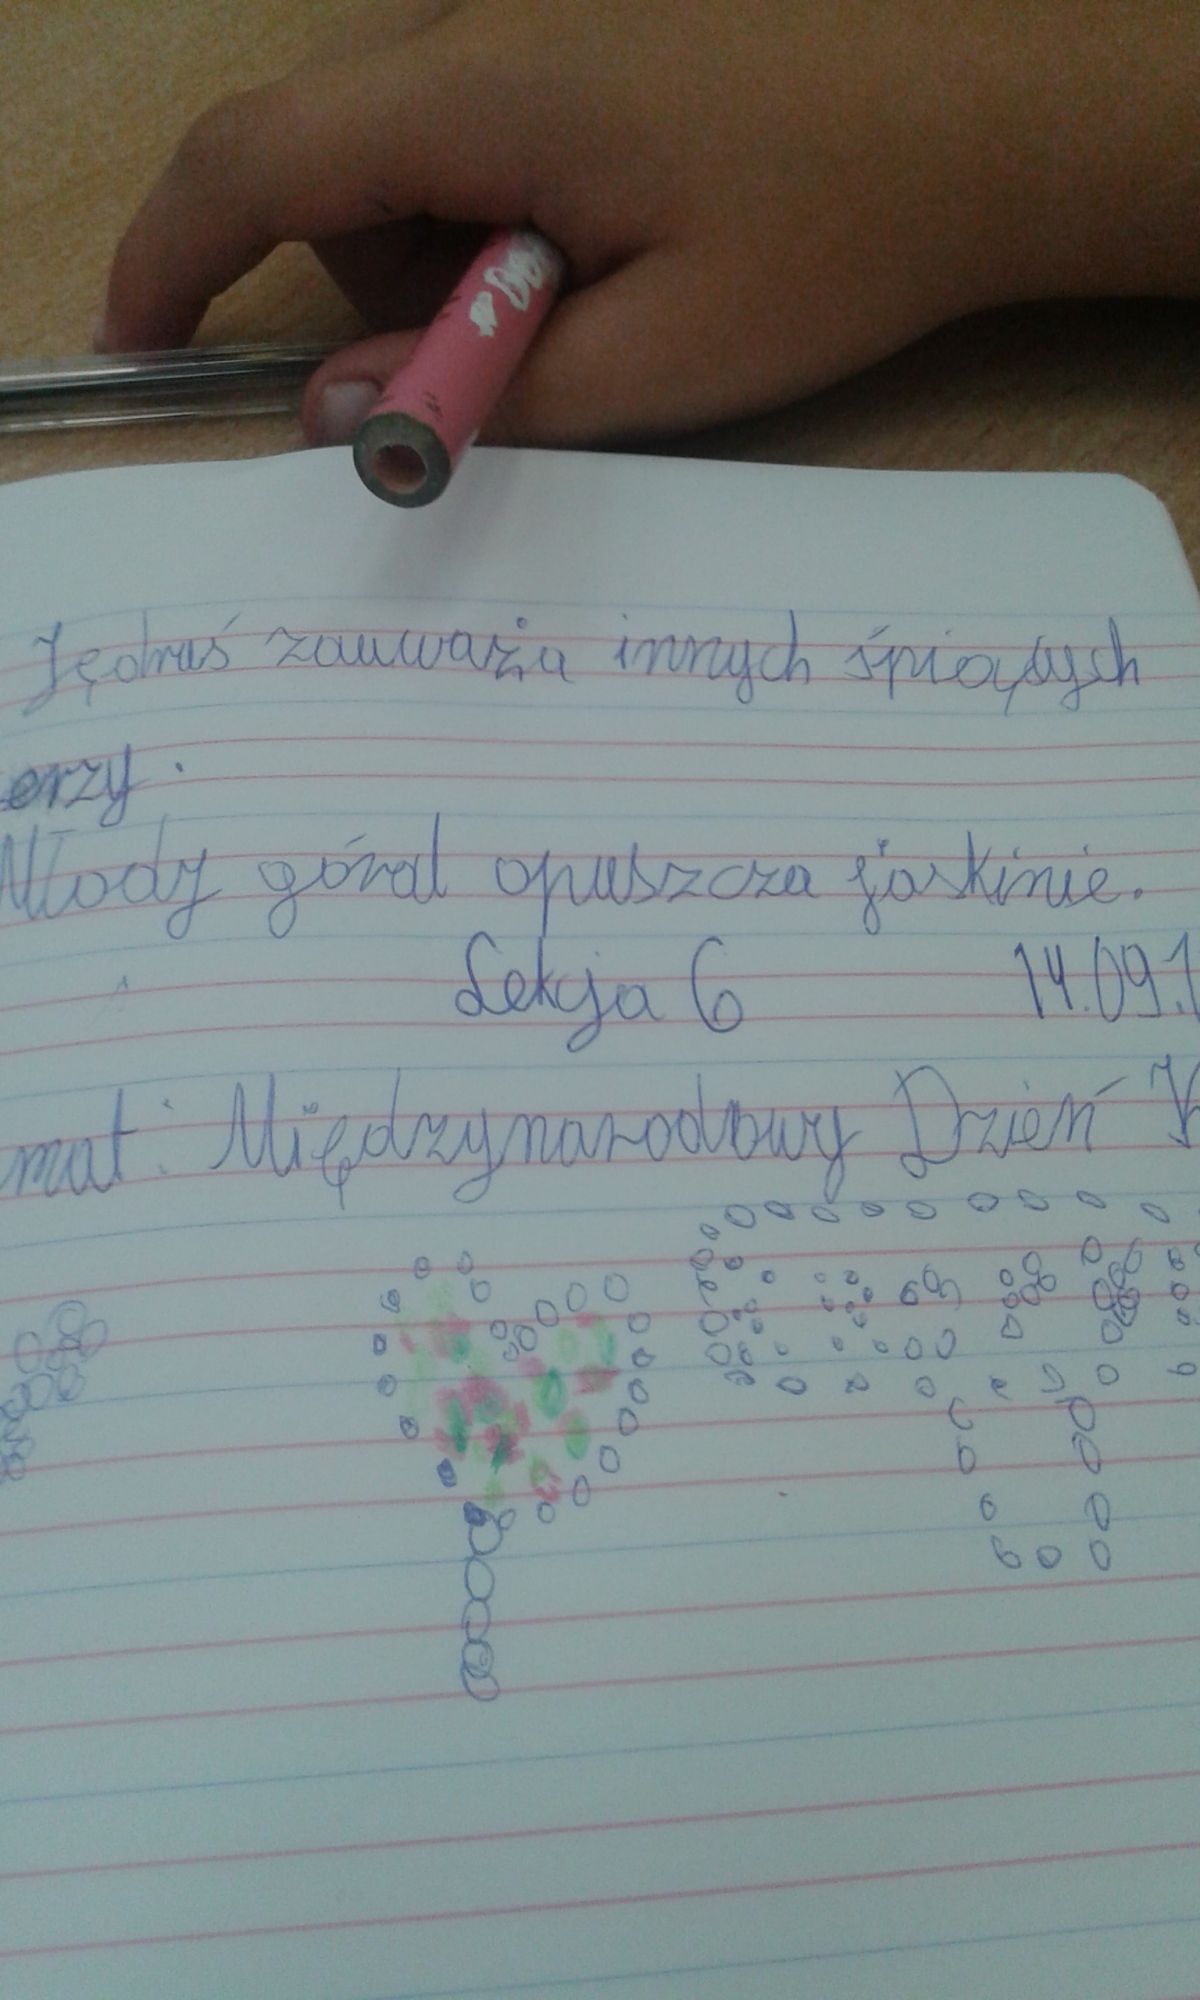 Jędruś zauważa innych śpiących
erzy.
Młody góral opuszcza jaskinie.
Lekcja 6 14.09.1
mat: Międzynarodowy Dzień K